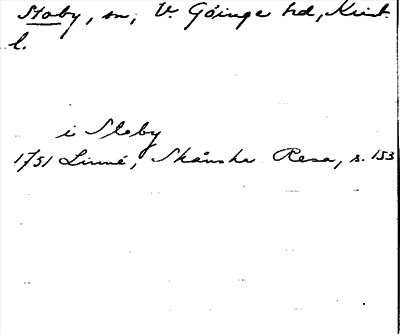 Stoby, sn, V. Göinge hd, Krist.
l.
i Sloby
1751 Linné, Skånska Resa, s. 153